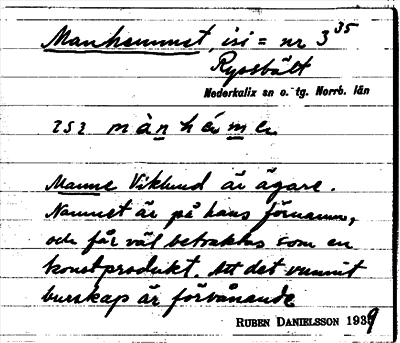 Manhemmet, isi = nr 3 35
Ryssbält
Nederkalix sn o. tg. Norrb. län
252 mànhém en
Manne Viklund är ägare.
Namnet är på hans förnamn,
och får väl betraktas som en
konstprodukt. Att det vunnit
burskap är förvånande
RUBEN DANIELSSON 1939